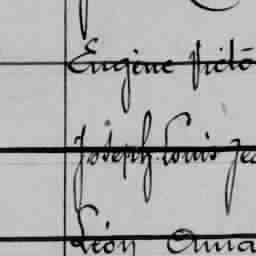 Eugène Victo
Joseph Louis Jea
Léon Ama